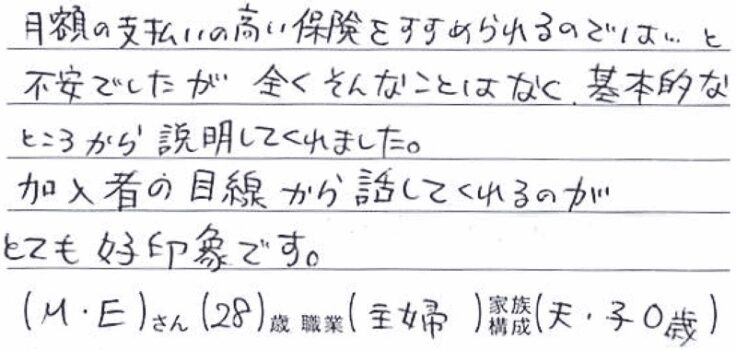 月額の支払いの高い保険をすすめられるのでは… と
不安でしたが 全くそんなことはなく、基本的な
ところから説明してくれました。
加入者の目線から話してくれるのが
とても好印象です。
(M・E)さん(28)歳 職業(主婦)家族構成(夫・子0歳)